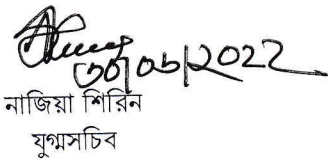 ৩০/০৬/২০২২
নাজিয়া শিরিন
যুগ্মসচিব